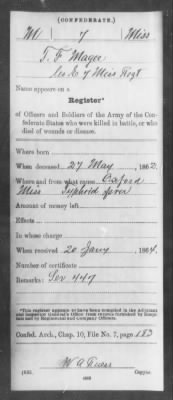 (CONFEDERATE.)
M 7 Miss
T. F. Magee
Co. 7 Miss Regt
Name appears on a
Register*
of Officers and Soldiers of the Army of the Confederate States who were killed in battle, or who
died of wounds or disease.
Where born
When deceased 27 May, 1862.
Where and from what cause Oxford
Miss Typhoid fever
Amount of money left
Effects
In whose charge
When received 20 Jany, 1864.
Number of certificate
Remarks: 447
*This register appears to have been compiled in the Adjutant
and Inspector General's Office from returns furnished by
by Regimental and Company Officers.
Confed. Arch., Chap. 10, File No. 7, page 183
W A
Copyist.